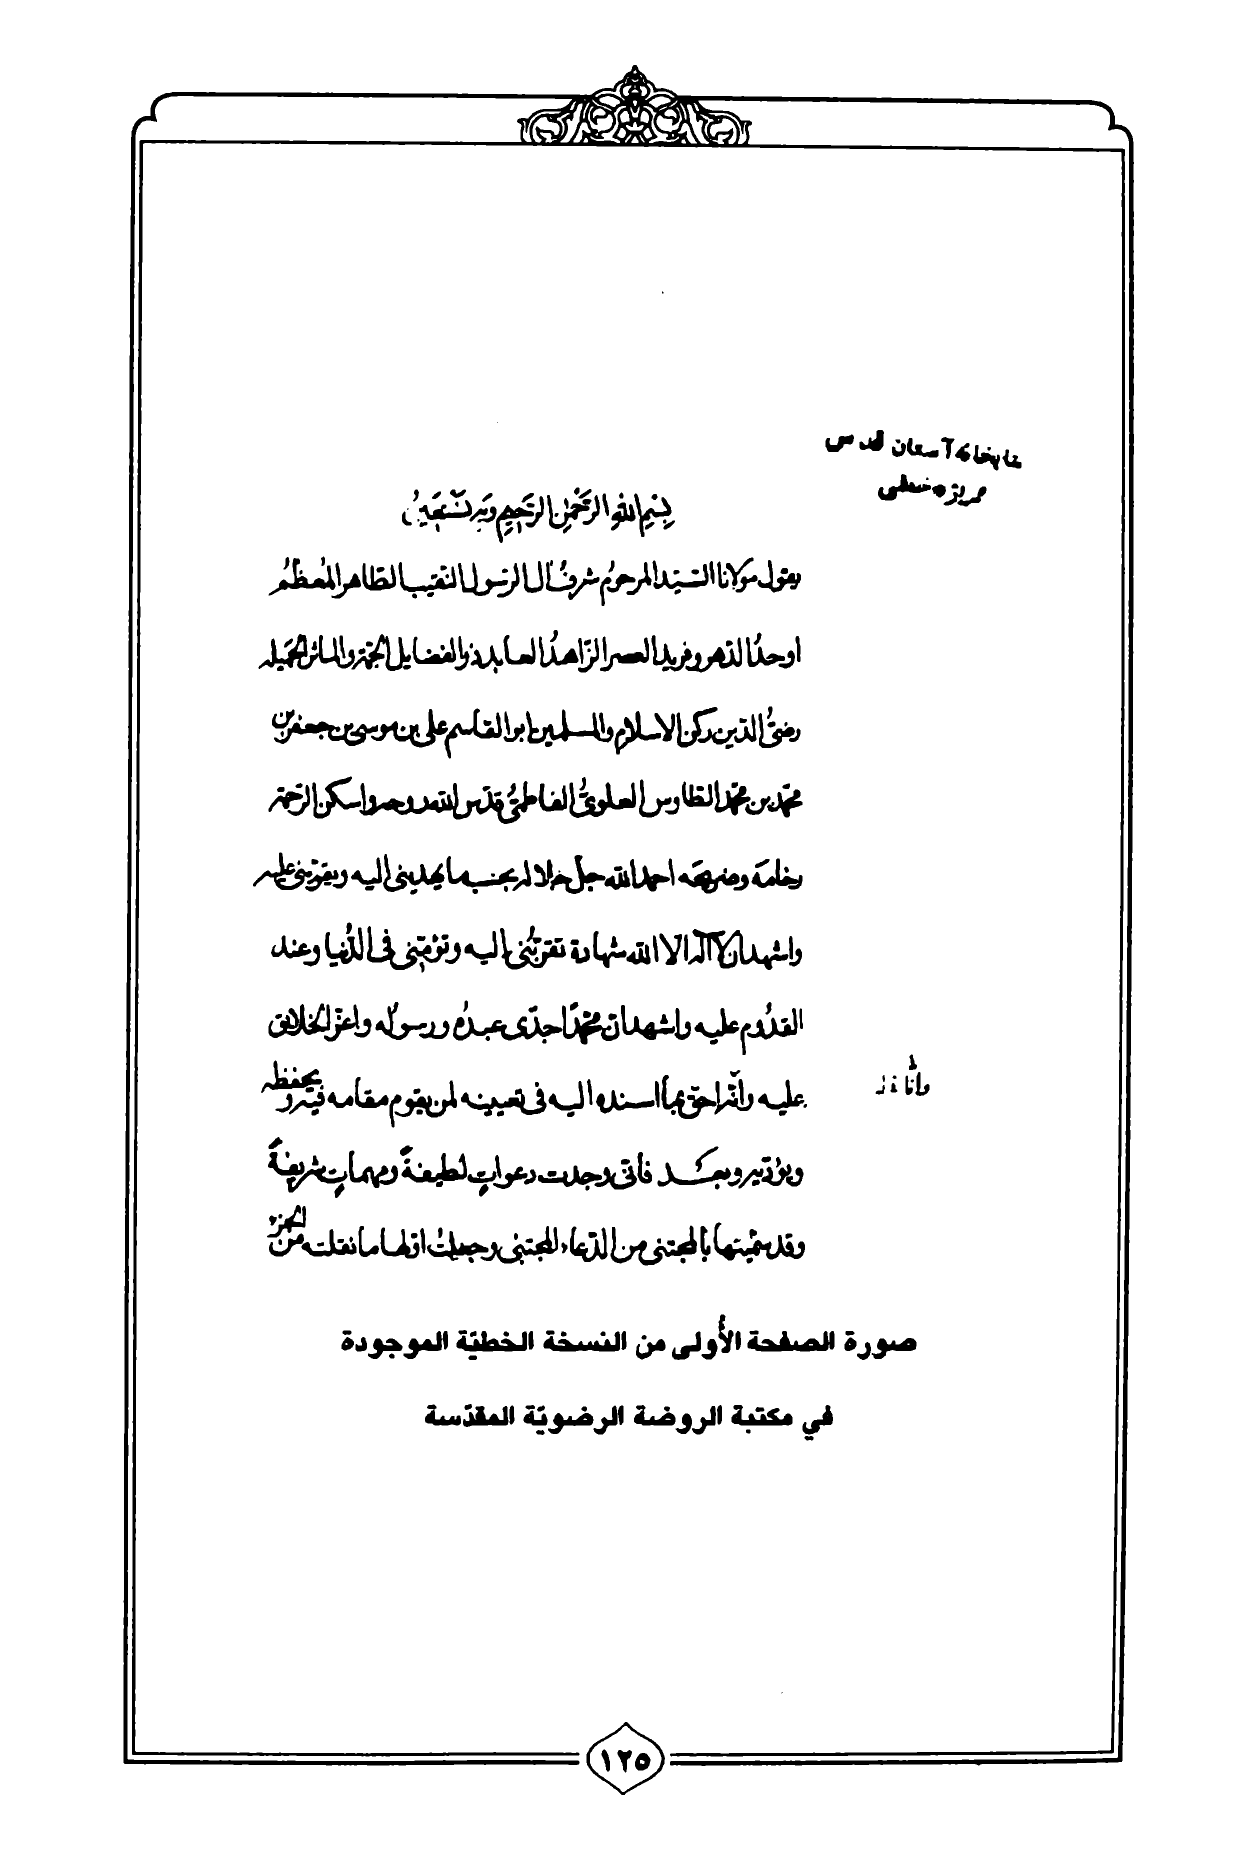 كتابخانه آستان قدس
بسم الله الرحمن الرحيم وبه نستعين
يقول مولانا السيّد المرحوم شرفُ ال الرسول النقيب الطاهر المُعظمُ
اوحدُ الدهر وفريد العصر الزاهدُ العابد ذو الفضايل الجمّة والماثر الجميله
رضىُّ الدين ركن الاسلام والمسلمين ابو القاسم على بن موسى بن جعفر بن
محمّد بن محمّد الطاوس العلوىُّ الفاطمىُّ قدّس الله روحه واسكن الرّحمة
رخامه وضريحه احمد الله جل جلاله بحسب ما يهدينى اليه ويقوّينى عليه
واشهد ان لا آله الا الله شهادة تقرّبُنى اليه وتؤمّننى فى الدُنيا وعند
القدُوم عليه واشهد ان محمّدًا جدّى عبدُه ورسولُه واعزّ الخلائق
عليه وانّه احق بما اسنده اليه فى تعيينه لمن يقوم مقامه فيه ويحفظه
ويؤدّيه وبعـد فانى وجدت دعواتٍ لطيفةً ومهماتٍ شريفةً
وقد سمّيتها بالمجتنى من الدّعاء المجتبى وجعلتُ اولها ما نقلته من الجزء
صورة الصفحة الأُولى من النسخة الخطيّة الموجودة
في مكتبة الروضة الرضويّة المقدّسة
١٢٥